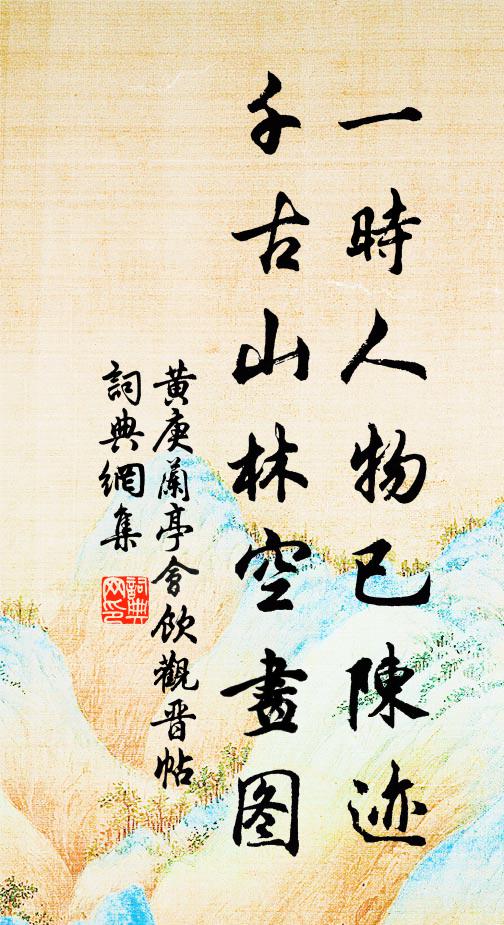 一時人物已陳迹
千古山林空畫图
黄庚蘭亭會飲觀晋帖
詞典網集
詞典網印